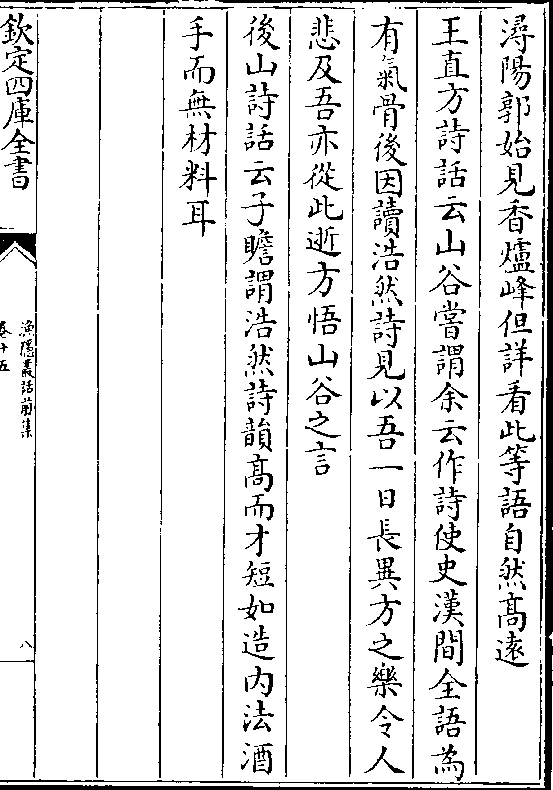 潯陽郭始見香爐峰但詳看此等語自然高遠
王直方詩話云山谷嘗謂余云作詩使史漢間全語為
有氣骨後因讀浩然詩見以吾一日長異方之樂令人
悲及吾亦從此逝方悟山谷之言
後山詩話云子瞻謂浩然詩韻高而才短如造内法酒
手而無材料耳
欽定四庫全書
漁隱叢話前集
卷十五
八